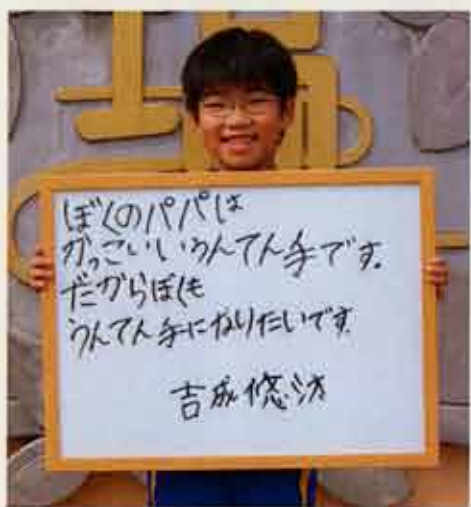 ぼくのパパは
かっこいいうんてん手です。
だからぼくも
うんてん手になりたいです
吉成悠